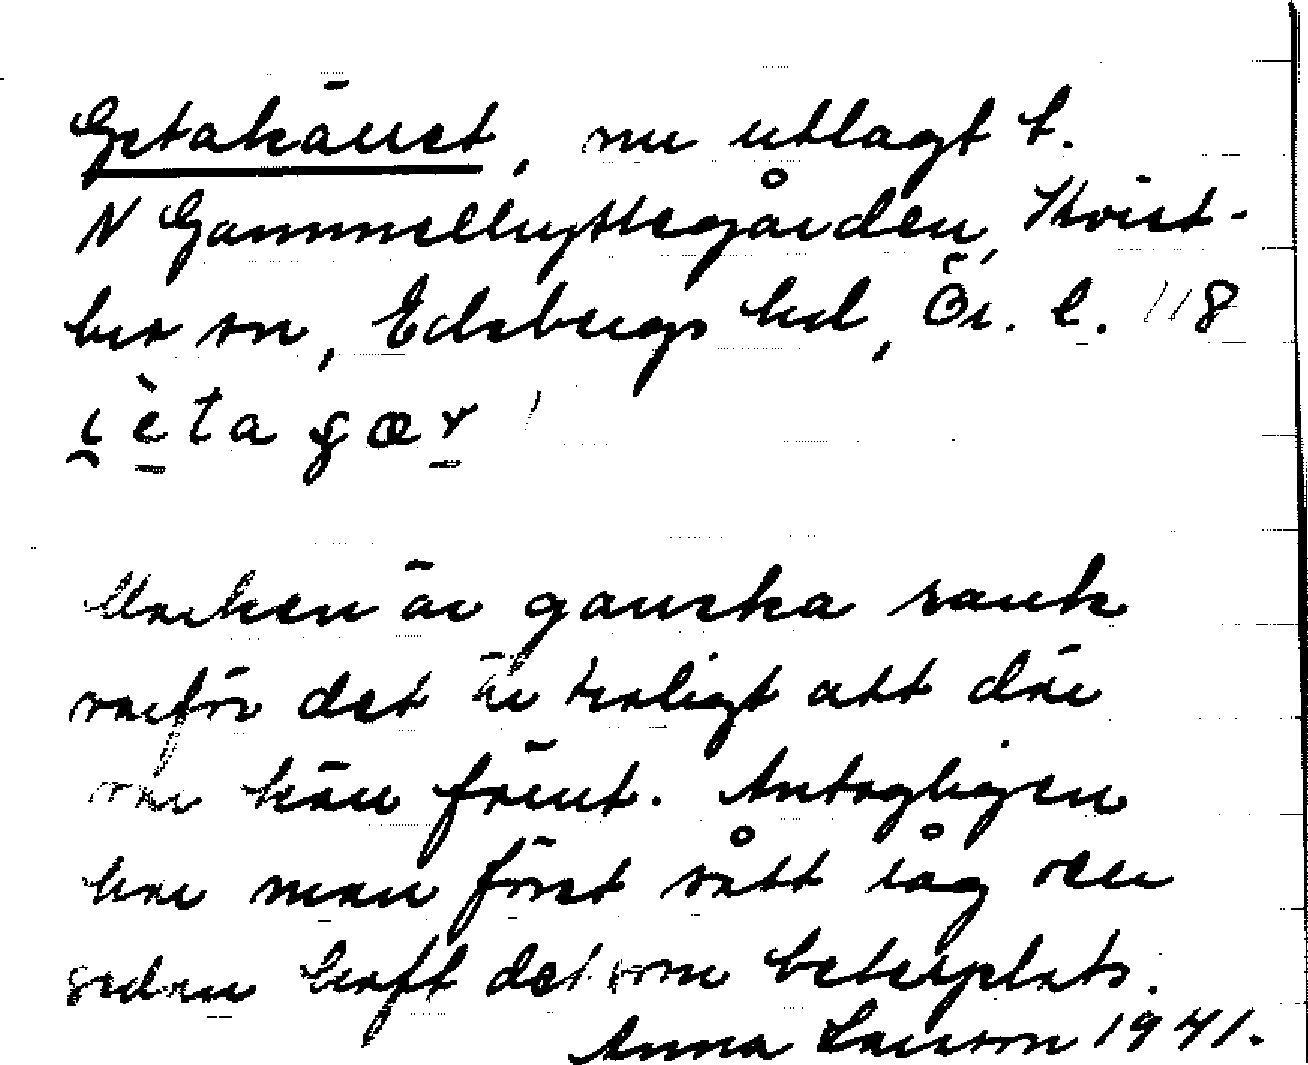 Getakärret, nu utlagt t.
N Gammelhyttegården, Kvist-
bro sn, Edsbergs hd, Ör. l. 118
i̯èta ɡær
Marken är ganska sank
varför det är troligt att där
var kärr förut. Antagligen
har man först sått råg och
sedan haft det som betesplats.
Anna Larsson 1941.